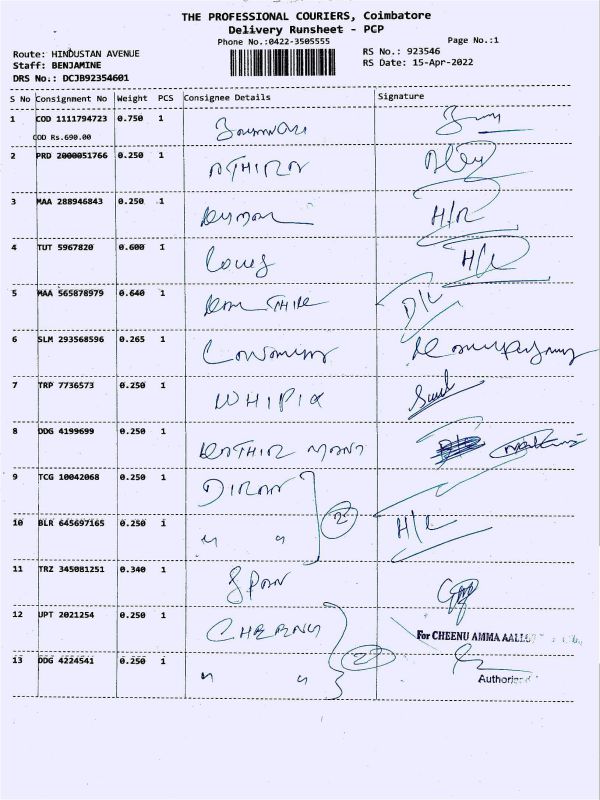 THE PROFESSIONAL COURIERS, Coimbatore
Delivery Runsheet - PCP
Phone No.:0422-3505555 Page No.:1
Route: HINDUSTAN AVENUE RS No.: 923546
Staff: BENJAMINE RS Date: 15-Apr-2022
DRS No.: DCJB92354601
S No Consignment No Weight PCS Consignee Details Signature
1 COD 1111794723 0.750 1
COD Rs.690.00
2 PRD 2000051766 0.250 1 ATHIRA
3 MAA 288946843 0.250 1 H/R
4 TUT 5967820 0.600 1 H/L
5 MAA 565878979 0.640 1 D/L
6 SLM 293568596 0.265 1
7 TRP 7736573 0.250 1 WHIPIX
8 DDG 4199699 0.250 1
9 TCG 10042068 0.250 1
10 BLR 645697165 0.250 1 " " 2 H/L
11 TRZ 345081251 0.340 1 SPAN
12 UPT 2021254 0.250 1 CHEENU For CHEENU AMMA
13 DDG 4224541 0.250 1 " " 2